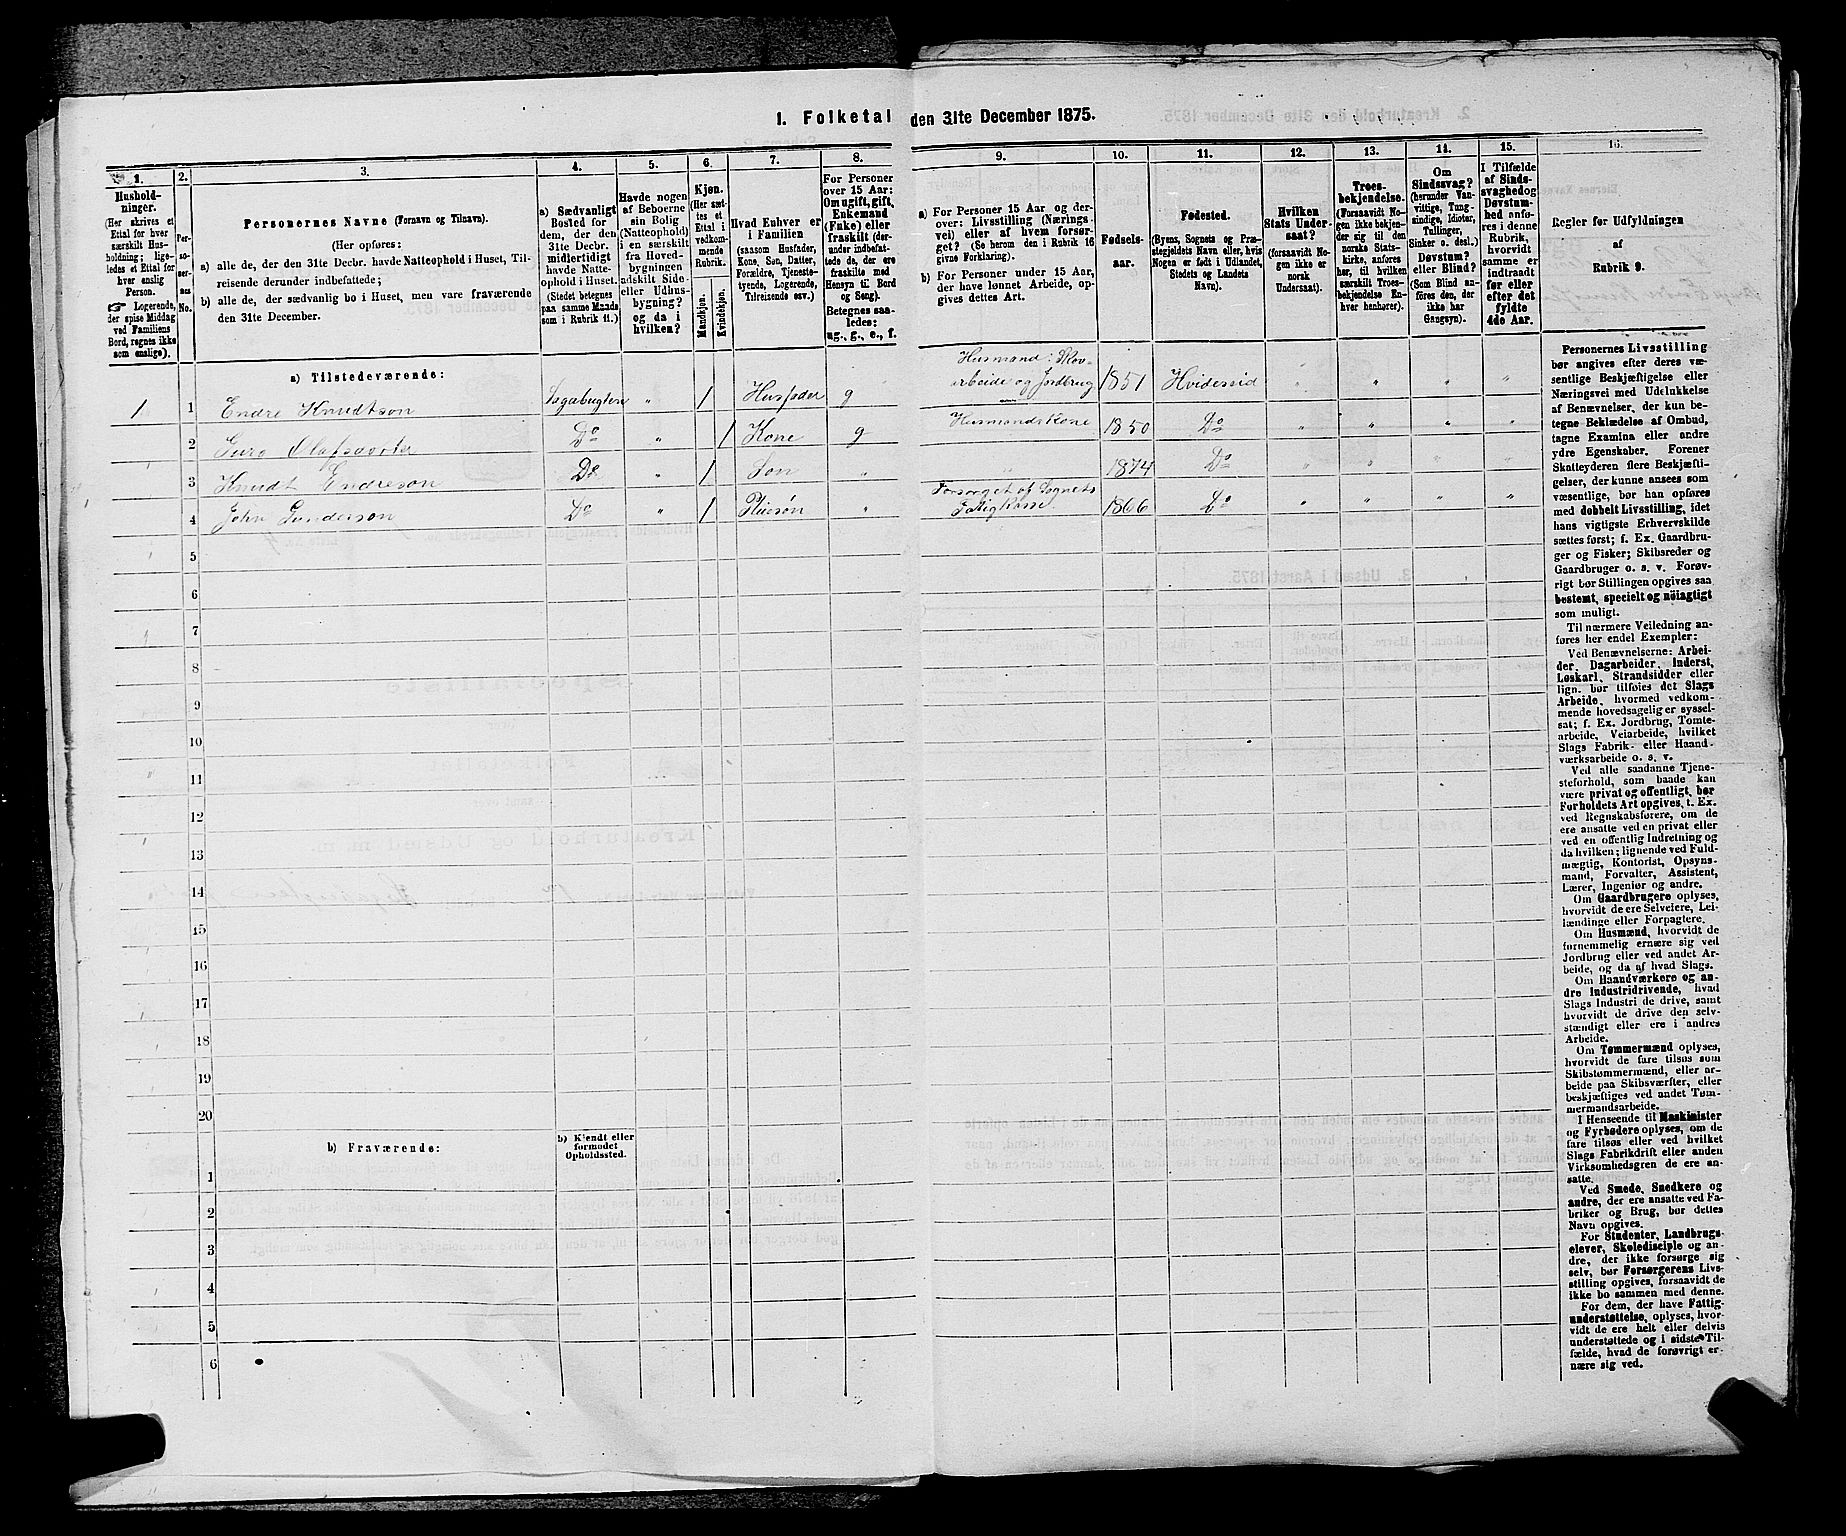 1. Folketal den 31te December 1875.
1.
Husholdninger.
(Her skrives et
Ettal for hver
særskilt Husholdning; ligeledes
et Ettal for
hver enslig
Person.
☞ Logerende,
der spise Middag
ved Familiens
Bord, regnes ikke
som enslige).
2.
Personernes
No.
3.
Personernes Navne (Fornavn og Tilnavn).
(Her opføres:
a) alle de, der den 31te Decbr. havde Natteophold i Huset, Tilreisende
derunder indbefattede;
b) alle de, der sædvanlig bo i Huset, men vare fraværende
den 31te December.
4.
a) Sædvanligt
Bosted for
dem, der den
31te Decbr.
midlertidigt
havde Natteophold
i Huset.
(Stedet betegnes
paa samme Maade
som i Rubrik 11.)
5.
Havde nogen
af Beboerne
sin Bolig
(Natteophold)
i en særskilt
fra Hovedbygningen
adskilt Side
eller Udhusbygning?
og da i
hvilken?
6.
Kjøn.
(Her sættes
et
Ettal i
vedkommende
Rubrik.
Mandkjøn.
Kvindekjøn.
7.
Hvad Enhver er
i Familien
(saasom Husfader,
Kone, Søn, Datter,
Forældre, Tjenestetyende,
Logerende,
Tilreisende osv.)
8.
For Personer
over 15 Aar:
Om ugift, gift,
Enkemand
(Enke) eller
fraskilt (derunder
indbefattede
de, der ere
fraskilte med
Hensyn til Bord
og Seng).
Betegnes saaledes:
ug., g., e., f.
9.
a) For Personer 15 Aar og derover:
Livsstilling (Næringsvei)
eller af hvem forsørget?
(Se herom den i Rubrik 16
givne Forklaring).
b) For Personer under 15 Aar,
der have lønnet Arbeide, opgives
dettes Art.
10.
Fødselsaar.
11.
Fødested.
(Byens, Sognets og Præstegjeldets
Navn eller, hvis
Nogen er født i Udlandet,
Stedets og Landets
Navn).
12.
Hvilken
Stats Undersaat?
(forsaavidt Nogen
ikke er
norsk
Undersaat).
13.
Troesbekjendelse.
(Forsaavidt Nogen
ikke bekjender
sig til den
norske Statskirke,
anføres
her, til hvilken
særskilt Troesbekjendelse
Enhver
henhører).
14.
Om
Sindssvag?
(herunder Vanvittige,
Tungsindige,
Idioter,
Tullinger,
Sinker o. desl.)
Døvstum?
eller Blind?
(Som Blind anføres
den, der
ikke har
Gangsyn).
15.
I Tilfælde
af Sindssvaghed
og
Døvstumhed
anføres
i denne
Rubrik,
hvorvidt
samme er
indtraadt
før eller
efter det
fyldte
4de Aar.
16.
Regler før Udfyldningen
af
Rubrik 9.
a) Tilstedeværende:
1 1 Endre Knudtson " 1 Husfader g Husmand: Skovarbeide og Jordbrug 1851 Hvidessid " " " "
2 Guro Olafsdotter Do " 1 Kone g Husmandskone 1850 Do " " " "
3 Knudt Endreson Do " 1 Søn " " 1874 Do " " " "
4 John Gunderson Do " 1 Pleiesøn " Forsørget af Sognets Fatigkasse 1866 Do " " " "
5
6
7
8
9
10
11
12
13
14
15
16
17
18
19
20
b) Fraværende:
b) Kjendt eller
formodet
Opholdssted.
1
2
3
4
5
6
Personernes Livsstilling
bør angives efter deres væsentlige
Beskjæftigelse eller
Næringsvei med Udelukkelse
af Benævnelser, der kun betegne
Beklædelse af Ombud,
tagne Examina eller andre
ydre Egenskaber. Forener
Skatteyderen flere Beskjæftigelser,
der kunne ansees som
væsentlige, bør han opføres
med dobbelt Livsstilling, idet
hans vigtigste Erhvervskilde
sættes først; f. Ex. Gaardbruger
og Fisker; Skibsreder og
Gaardbruger o. s. v. Forøvrigt
bør Stillingen opgives saa
bestemt, specielt og nøiagtigt
som muligt.
Til nærmere Veiledning anføres
her endel Exempler:
Ved Benævnelserne: Arbeider,
Dagarbeider, Inderst,
Løskarl, Strandsidder eller
lign. bør tilføies det Slags
Arbeide, hvormed vedkommende
hovedsagelig er sysselsat;
f. Ex. Jordbrug, Tomtearbeide,
Veiarbeide, hvilket
Slags Fabrik- eller Haandværksarbeide
o. s. v.
Ved alle saadanne Tjenesteforhold,
som baade kan
være privat og offentligt, bør
Forholdets Art opgives, t. Ex.
ved Regnskabsførere, om de
ere ansatte ved en privat eller
ved en offentlig Indretning og
da hvilken; lignende ved Fuldmægtig,
Kontorist, Opsynsmand,
Forvalter, Assistent,
Lærer, Ingeniør og andre.
Om Gaardbrugere oplyses,
hvorvidt de ere Selveiere, Leilændinge
eller Forpagtere.
Om Husmænd, hvorvidt de
fornemmelig ernære sig ved
Jordbrug eller ved andet Arbeide,
og da af hvad Slags.
Om Haandværkere og andre
Industridrivende, hvad
Slags Industri de drive, samt
hvorvidt de drive den selvstændigt
eller ere i andres
Arbeide.
Om Tømmermænd oplyses,
hvorvidt de fare tilsøs som
Skibstømmermænd, eller arbeide
paa Skibsværfter, eller
beskjæftiges ved andet Tømmermandsarbeide.
I Henseende til Maskinister
og Fyrbødere oplyses, om de
fare tilsøs eller ved hvilket
Slags Fabrikdrift eller anden
Virksomhedsgren de ere ansatte.
Ved Smede, Snedkere og
andre, der ere ansatte ved Fabriker
og Brug, bør dettes
Navn opgives.
For Studenter, Landbrugselever,
Skoledisciple og andre,
der ikke forsørge sig
selv, bør Forsørgerens Livsstilling
opgives, forsaavidt de
ikke bo sammen med denne.
For dem, der have Fattigunderstøttelse,
oplyses, hvorvidt
de ere helt eller delvis
understøttede og i sidste Tilfælde,
hvad de forøvrigt ernære
sig ved.